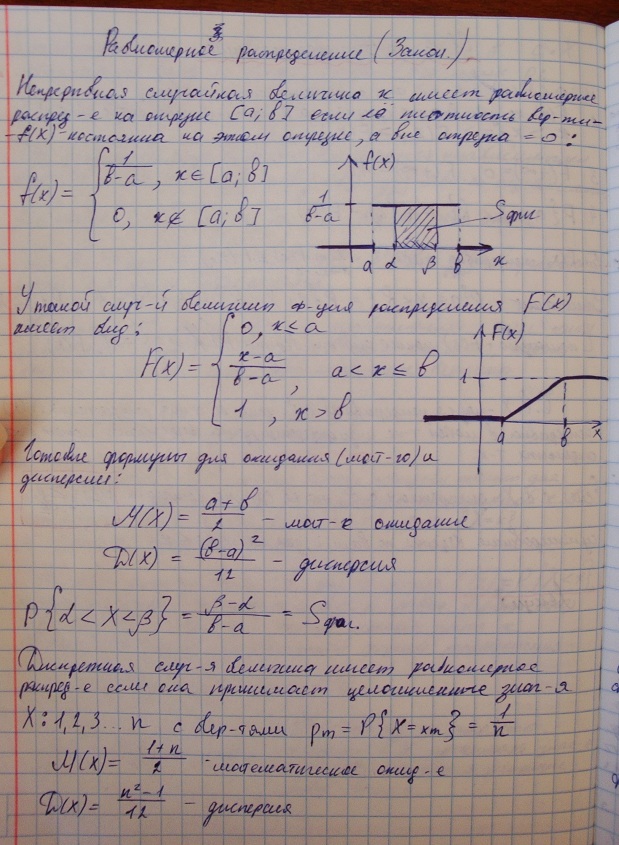 3
Равномерное распределение (Закон.)
Непрерывная случайная величина x имеет равномерное
распред-е на отрезке [a; в] если её плотность вер-ти-
-f(x)-постоянна на этом отрезке, а вне отрезка =0:
f(x) = { 1/(в-a), x∈[a; в]
0, x∉[a; в]
f(x)
1/(в-a)
Sфиг.
a α β в x
У такой случ-й величины ф-ция распределения F(x)
имеет вид:
F(x) = { 0, x≤a
(x-a)/(в-a), a<x≤в
1, x>в
F(x)
1
a в x
Готовые формулы для ожидания (мат-го) и
дисперсии:
M(X) = (a+в)/2 - мат-е ожидание
D(X) = (в-a)²/12 - дисперсия
P{α<X<β} = (β-α)/(в-a) = Sфиг.
Дискретная случ-я величина имеет равномерное
распред-е если она принимает целочисленные знач-я
X: 1, 2, 3... n с вер-тями pm = P{X=xm} = 1/n
M(X) = (1+n)/2 - математическое ожид-е
D(X) = (n²-1)/12 - дисперсия